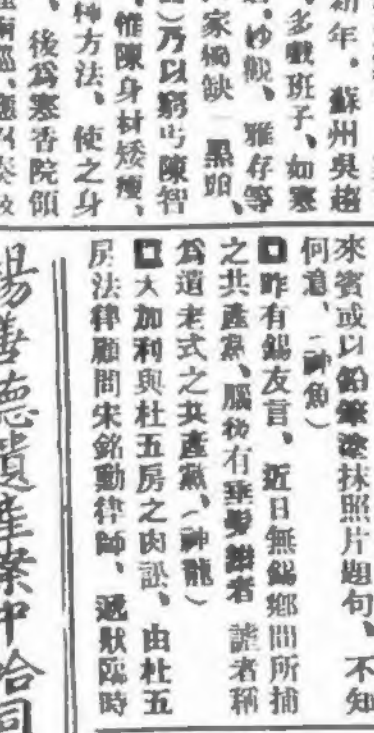 新年、蘇州吳趨
多戲班子、如寒
、妙觀、雅存等
家獨缺 黑頭、
)乃以窮丐陳智
惟陳身材矮瘦、
種方法、使之身
、後爲寒香院領
南巡、
來賓或以鉛筆塗抹照片題句、不知
何意、(神魚)
口昨有錫友言、近日無錫鄉間所捕
之共產黨、腦後有垂髮辮者 謔者稱
爲道老式之共產黨、(神龍)
口大加利與杜五房之肉訟、由杜五
房法律顧問宋銘勳律師、遞狀臨時
楊善德遺產案中哈同